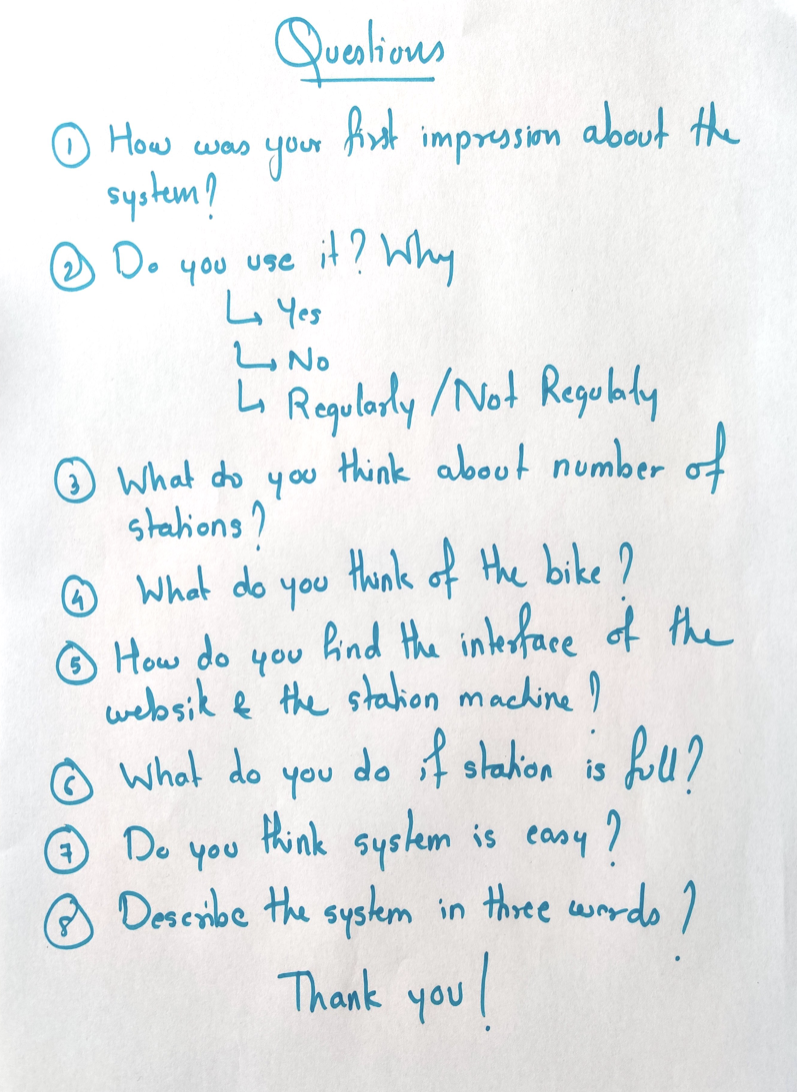 Questions
① How was your first impression about the
system?
② Do you use it? Why
↳ Yes
↳ No
↳ Regularly / Not Regularly
③ What do you think about number of
stations?
④ What do you think of the bike?
⑤ How do you find the interface of the
website & the station machine?
⑥ What do you do if station is full?
⑦ Do you think system is easy?
⑧ Describe the system in three words?
Thank you!